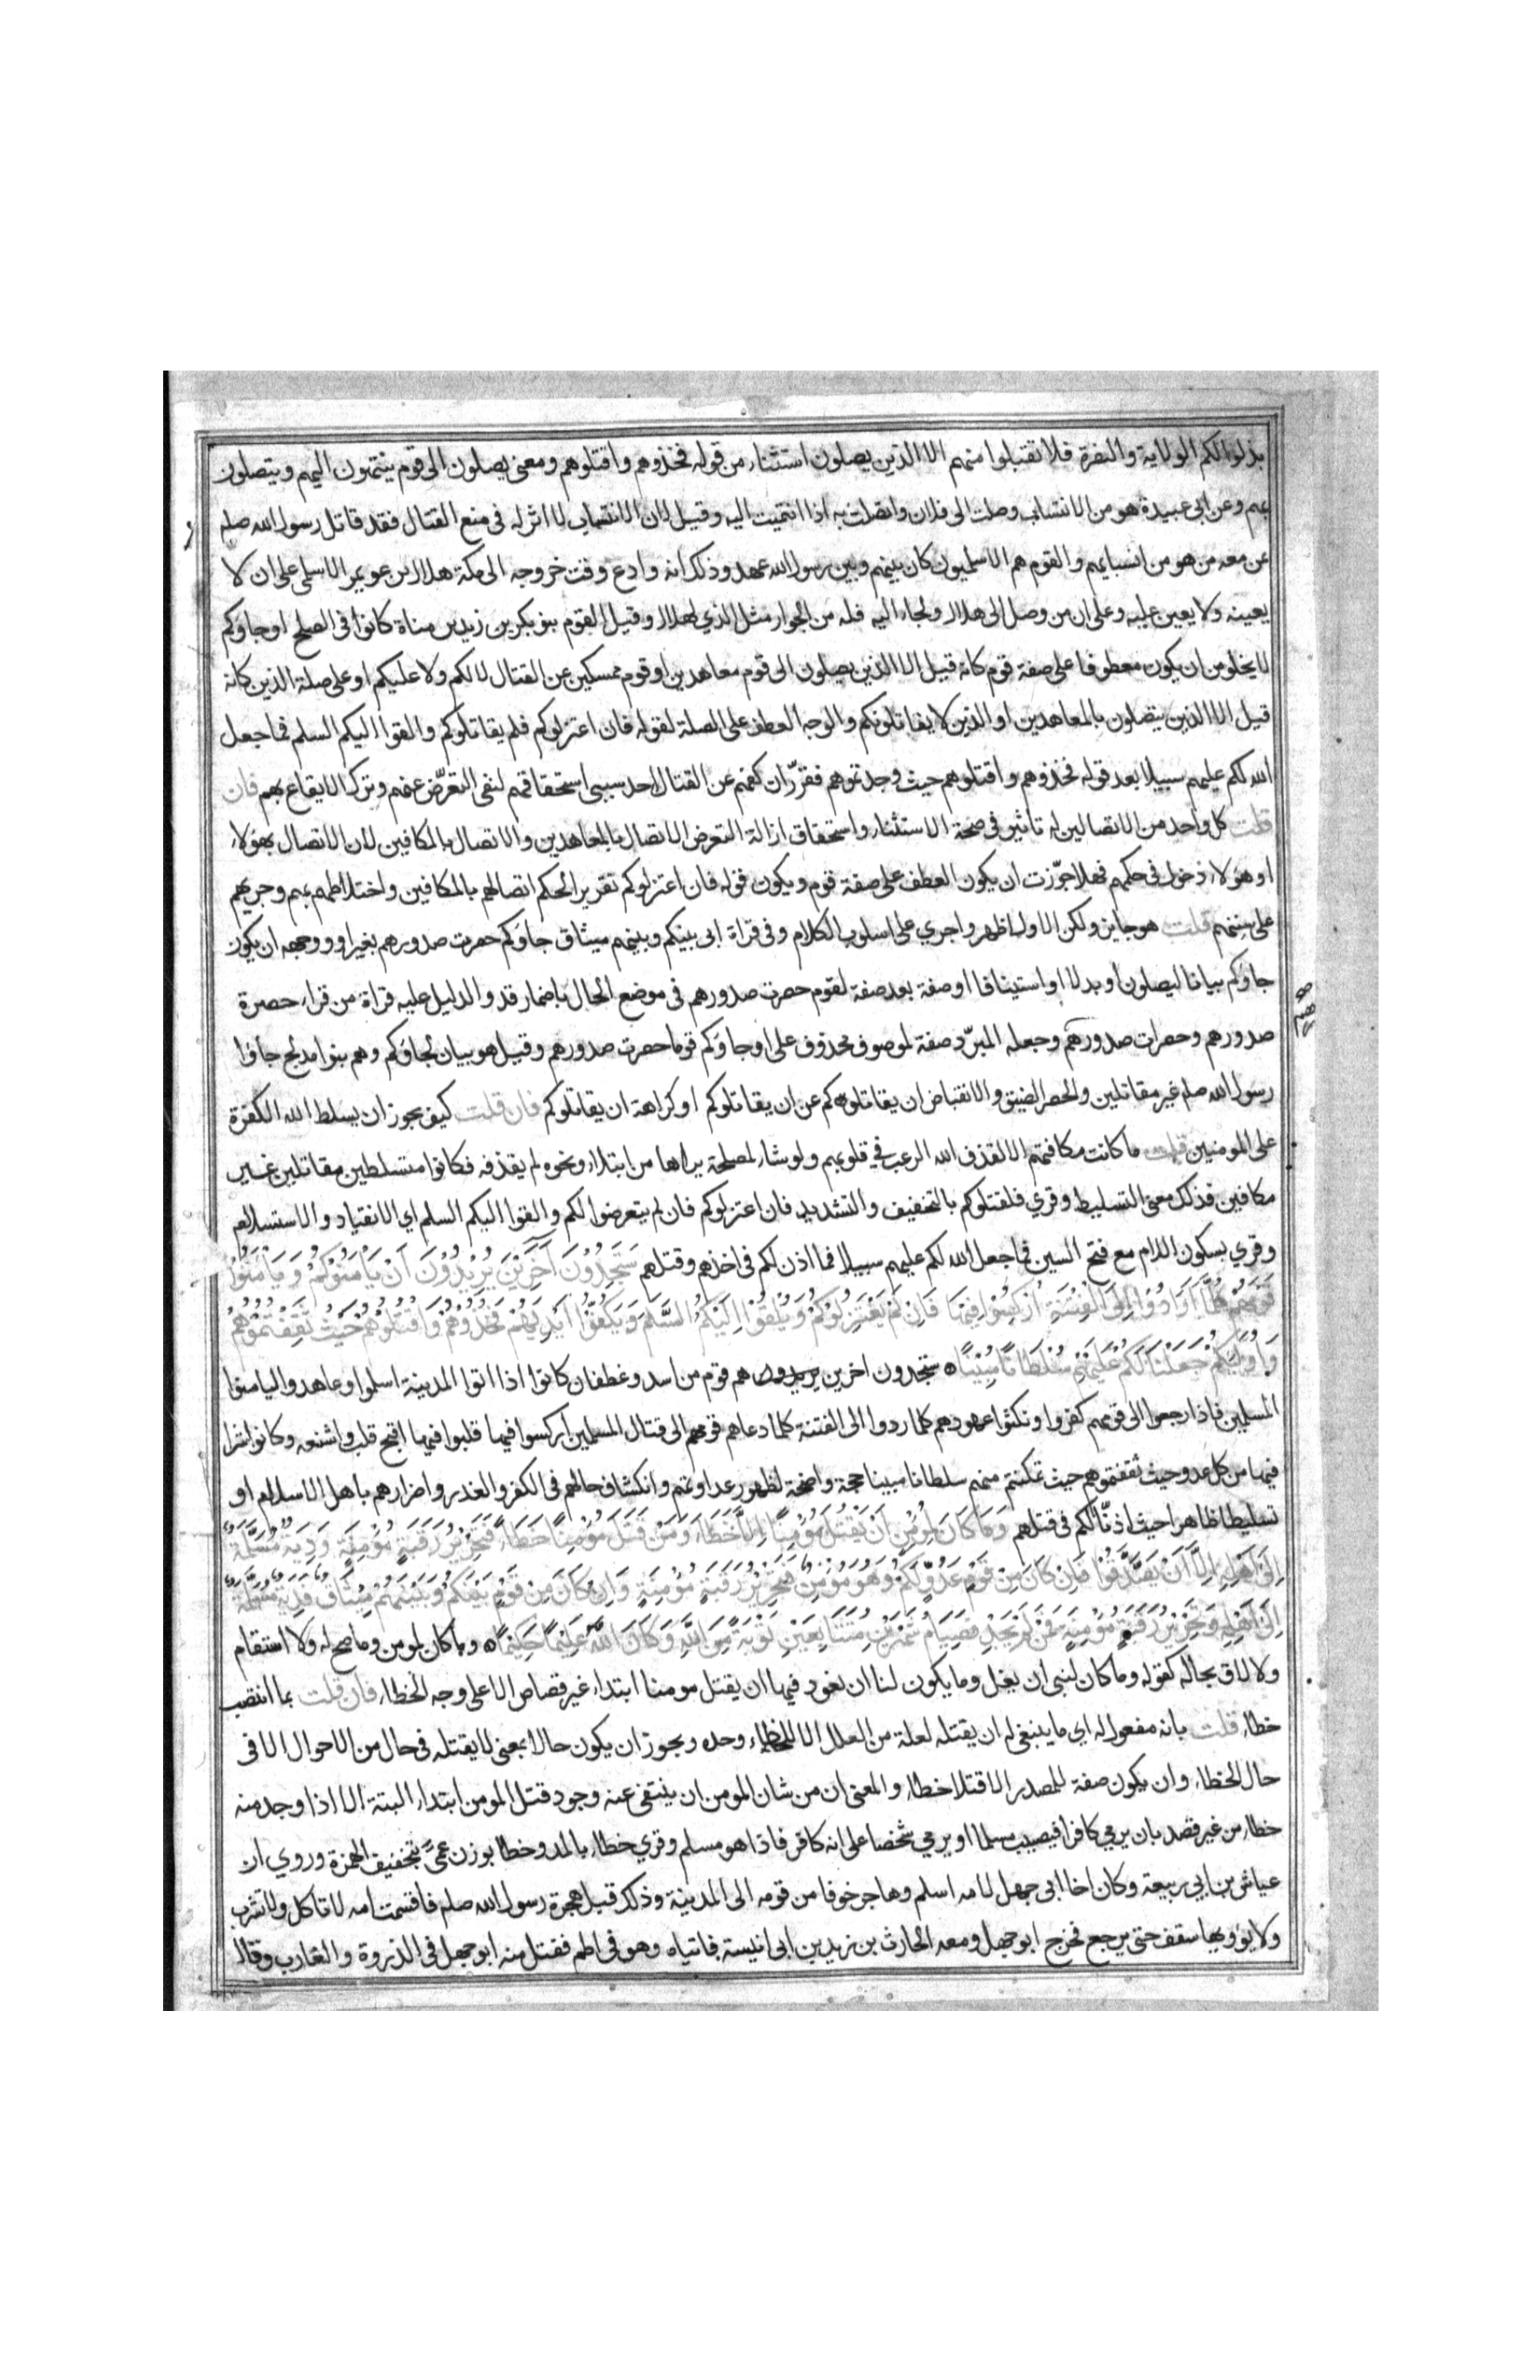 بذلوا لكم الولاية والنصرة فلا تقبلوا منهم الا الذين يصلون استثناء من قوله فخذوهم واقتلوهم ومعنى يصلون الى قوم ينتهون اليهم ويتصلون
بهم وعن ابي عبيدة هو من الانتساب وصلت الى فلان واتصلت به اذا انتميت اليه وقيل لان الانتساب لا اثر له في منع القتال فقد قاتل رسول الله صلم
عن معه من هو من انسبايهم والقوم هم الاسلميون كان بينهم وبين رسول الله عهد وذلك انه وادع وقت خروجه الى مكة هلال بن عويمر الاسلمي على ان لا
يعينه ولا يعين عليه وعلى ان من وصل الى هلال ولجاء اليه فله من الجوار مثل الذي لهلال وقيل القوم بنو بكر بن زيد بن مناة كانوا في الصلح او جاوكم
لا يخلو من ان يكون معطوفا على صفة قوم كانه قيل الا الذين يصلون الى قوم معاهدين او قوم ممسكين عن القتال لا لكم ولا عليكم او على صلة الذين كانه
قيل الا الذين يتصلون بالمعاهدين او الذين لا يقاتلونكم والوجه العطف على الصلة لقوله فان اعتزلوكم فلم يقاتلوكم والقوا اليكم السلم فما جعل
الله لكم عليهم سبيلا بعد قوله فخذوهم واقتلوهم حيث وجدتموهم فقرر ان كفهم عن القتال احد سببي استحقاقهم لنفي التعرّض عنهم وترك الايقاع بهم فان
قلت كل واحد من الاتصالين له تاثير في صحة الاستثناء واستحقاق ازالة التعرض الاتصال بالمعاهدين والاتصال بالمكافين لان الاتصال بهؤلاء
او هؤلاء دخول في حكمهم فهلا جوّزت ان يكون العطف على صفة قوم ويكون قوله فان اعتزلوكم تقرير الحكم اتصالهم بالمكافين واختلاطهم بهم وجريهم
على سننهم قلت هو جايز ولكن الاول اظهر واجري على اسلوب الكلام وفي قراة ابي بينكم وبينهم ميثاق جاؤكم حصرت صدورهم بغير او ووجهه ان يكون
جاؤكم بيانا ليصلون او بدلا او استينافا او صفة بعد صفة لقوم حصرت صدورهم في موضع الحال باضمار قد والدليل عليه قراة من قراء حصرة
صدورهم وحصرات صدورهم وجعله المبرّد صفة لموصوف محذوف على او جاؤكم قوما حصرت صدورهم وقيل هو بيان لجاؤكم وهم بنوا مدلج جاؤا
رسول الله صلم غير مقاتلين والحصر الضيق والانقباض ان يقاتلوكم عن ان يقاتلوكم او كراهة ان يقاتلوكم فان قلت كيف يجوز ان يسلط الله الكفرة
على المومنين قلت ما كانت مكافتهم الا لقذف الله الرعب في قلوبهم ولو شاء لمصلحة يراها من ابتلاء ونحوه لم يقذفه فكانوا متسلطين مقاتلين غير
مكافين فذلك معنى التسليط وقري فلقتلوكم بالتخفيف والتشديد فان اعتزلوكم فان لم يتعرضوا لكم والقوا اليكم السلم اي الانقياد والاستسلام
وقري بسكون اللام مع فتح السين فما جعل الله لكم عليهم سبيلا فما اذن لكم في اخذهم وقتلهم سَتَجِدُونَ آخَرِينَ يُرِيدُونَ اَنْ يَاْمَنُوكُمْ وَيَاْمَنُوا
قَوْمَهُمْ كُلَّمَا رُدُّوا اِلَى الْفِتْنَةِ اُرْكِسُوا فِيهَا فَاِنْ لَمْ يَعْتَزِلُوكُمْ وَيُلْقُوا اِلَيْكُمُ السَّلَمَ وَيَكُفُّوا اَيْدِيَهُمْ فَخُذُوهُمْ وَاقْتُلُوهُمْ حَيْثُ ثَقِفْتُمُوهُمْ
وَاُولَئِكُمْ جَعَلْنَا لَكُمْ عَلَيْهِمْ سُلْطَانًا مُبِينًا ه ستجدون اخرين يريدون هم قوم من اسد وغطفان كانوا اذا اتوا المدينة اسلموا وعاهدوا ليامنوا
المسلمين فاذا رجعوا الى قومهم كفروا ونكثوا عهودهم كلما ردوا الى الفتنة كلما دعاهم قومهم الى قتال المسلمين اركسوا فيها قلبوا فيها اقبح قلب واشنعه وكانوا شرا
فيها من كل عدو حيث ثقفتموهم حيث تمكنتم منهم سلطانا مبينا حجة واضحة لظهور عداوتهم وانكشاف حالهم في الكفر والغدر واضرارهم باهل الاسلام او
تسليطا ظاهرا حيث اذنّا لكم في قتلهم وَمَا كَانَ لِمُؤْمِنٍ اَنْ يَقْتُلَ مُؤْمِنًا اِلَّا خَطَاءً وَمَنْ قَتَلَ مُؤْمِنًا خَطَاءً فَتَحْرِيرُ رَقَبَةٍ مُؤْمِنَةٍ وَدِيَةٌ مُسَلَّمَةٌ
اِلَى اَهْلِهِ اِلَّا اَنْ يَصَّدَّقُوا فَاِنْ كَانَ مِنْ قَوْمٍ عَدُوٍّ لَكُمْ وَهُوَ مُؤْمِنٌ فَتَحْرِيرُ رَقَبَةٍ مُؤْمِنَةٍ وَاِنْ كَانَ مِنْ قَوْمٍ بَيْنَكُمْ وَبَيْنَهُمْ مِيثَاقٌ فَدِيَةٌ مُسَلَّمَةٌ
اِلَى اَهْلِهِ وَتَحْرِيرُ رَقَبَةٍ مُؤْمِنَةٍ فَمَنْ لَمْ يَجِدْ فَصِيَامُ شَهْرَيْنِ مُتَتَابِعَيْنِ تَوْبَةً مِنَ اللَّهِ وَكَانَ اللَّهُ عَلِيمًا حَكِيمًا ه وما كان لمومن وما صح له ولا استقام
ولا لاق بحاله كقوله وما كان لنبي ان يغل وما يكون لنا ان نعود فيها ان يقتل مومنا ابتداء غير قصاص الا على وجه الخطاء فان قلت بما انتصب
خطاء قلت بانه مفعول له اي ما ينبغي له ان يقتله لعلة من العلل الا للخطاء وحده ويجوز ان يكون حالا بمعنى لا يقتله في حال من الاحوال الا في
حال الخطاء وان يكون صفة للمصدر الا قتلا خطاء والمعنى ان من شان المومن ان ينتفي عنه وجود قتل المومن ابتداء البتة الا اذا وجد منه
خطاء من غير قصد بان يرمي كافرا فيصيب مسلما او يرمي شخصا على انه كافر فاذا هو مسلم وقري خطاء بالمد وخطا بوزن عمىً بتخفيف الهمزة وروي ان
عياش بن ابي ربيعة وكان اخا ابي جهل لامه اسلم وهاجر خوفا من قومه الى المدينة وذلك قبل هجرة رسول الله صلم فاقسمت امه لا تاكل ولا تشرب
ولا يؤويها سقف حتى يرجع فخرج ابو جهل ومعه الحارث بن زيد بن ابي انيسة فاتياه وهو في اطم ففتل منه ابو جهل في الذروة والغارب وقال